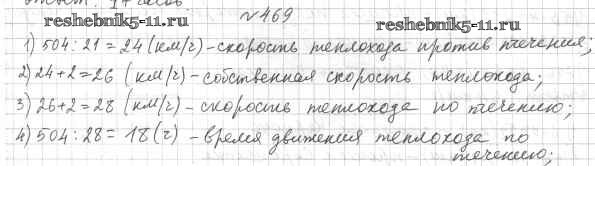 Ответ: 17 часов.
reshebnik5-11.ru №469 reshebnik5-11.ru
1) 504 : 21 = 24 (км/ч) – скорость теплохода против течения;
2) 24 + 2 = 26 (км/ч) – собственная скорость теплохода;
3) 26 + 2 = 28 (км/ч) – скорость теплохода по течению;
4) 504 : 28 = 18 (ч) – время движения теплохода по
течению;